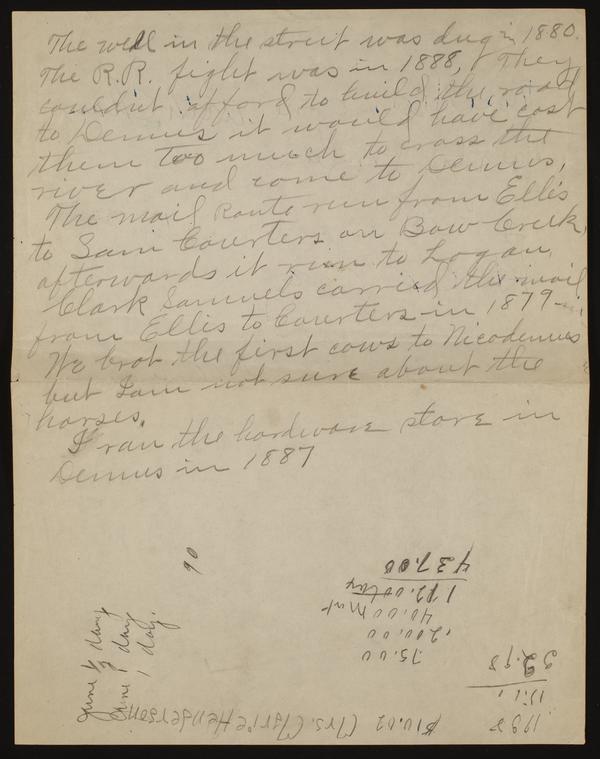 The well in the street was dug in 1880.
The R.R. fight was in 1888, They
couldn't afford to build the road
to Demus it would have cost
them too much to cross the
river and come to Demus,
The mail Route run from Ellis
to Sam Courters on Bow Creek,
afterwards it run to Logan,
Clark Samuels carried the mail
from Ellis to Courters in 1879
We brot the first cows to Nicodemus
but I am not sure about the
horses.
I ran the hardware store in
Demus in 1887
90
June ½ day
June ½ day
1 day.
$10.02 Mrs. Henderson
75.00
200.00
40.00
437.00